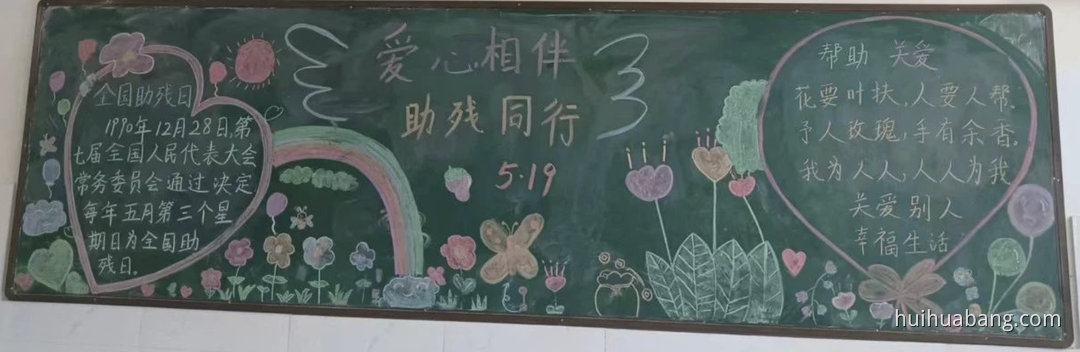 全国助残日
1990年12月28日,第
七届全国人民代表大会
常务委员会通过决定
每年五月第三个星
期日为全国助
残日。
爱心相伴
助残同行
5·19
帮助 关爱
花要叶扶,人要人帮。
予人玫瑰,手有余香。
我为人人,人人为我
关爱别人
幸福生活
huihuabang.com